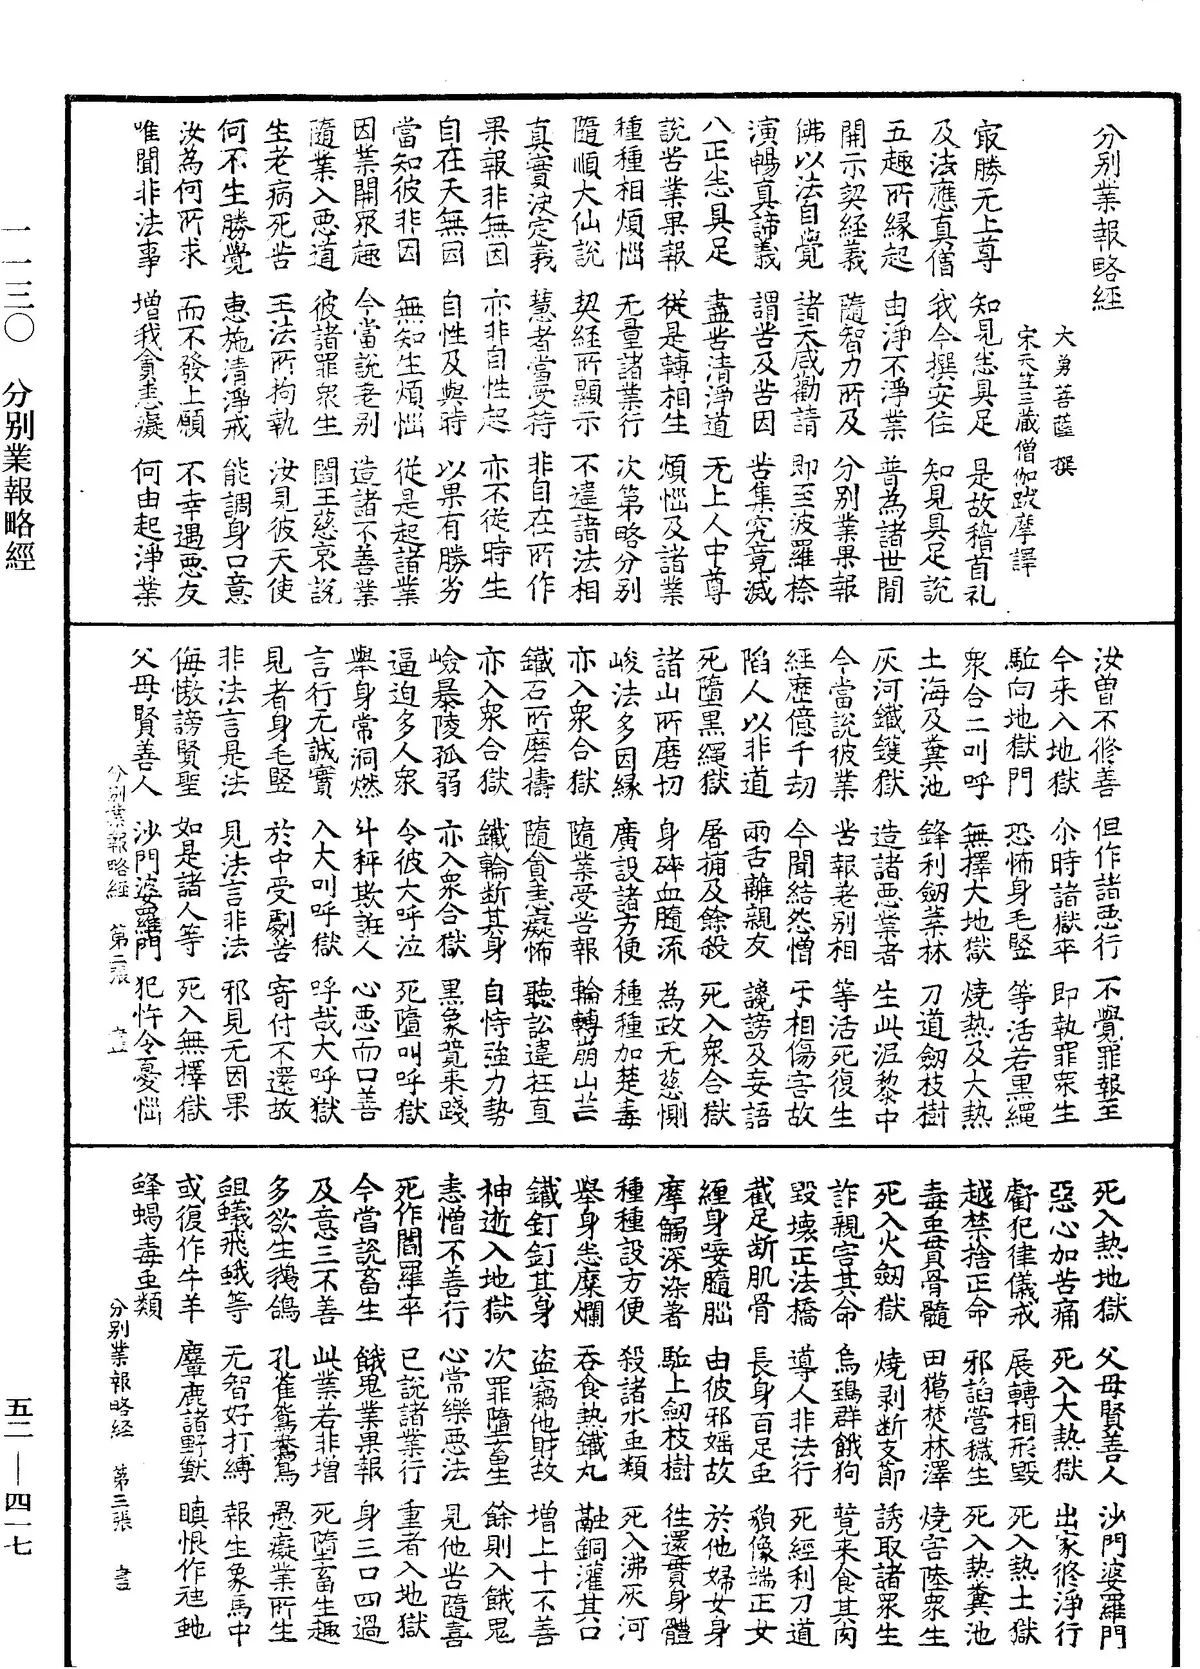 分別業報略經
大勇菩薩撰
宋天竺三藏僧伽跋摩譯
冣勝无上尊　知見悉具足　是故稽首礼
及法應真僧　我今撰安住　知見具足說
五趣所緣起　由淨不淨業　普為諸世間
開示契經義　隨智力所及　分別業果報
佛以法自覺　諸天咸勸請　即至波羅㮈
演暢真諦義　謂苦及苦因　苦集究竟滅
八正悉具足　盡苦清淨道　无上人中尊
說苦業果報　從是轉相生　煩惱及諸業
種種相煩惱　无量諸業行　次第略分別
隨順大仙說　契經所顯示　不違諸法相
真實決定義　慧者當受持　非自在所作
果報非無因　亦非自性起　亦不從時生
自在天無因　自性及與時　以果有勝劣
當知彼非因　無知生煩惱　從是起諸業
因業開眾趣　今當說差別　造諸不善業
隨業入惡道　彼諸罪眾生　閻王慈哀說
生老病死苦　王法所拘執　汝見彼天使
何不生勝覺　惠施清淨戒　能調身口意
汝為何所求　而不發上願　不幸遇惡友
唯聞非法事　增我貪恚癡　何由起淨業
汝曾不修善　但作諸惡行　不覺罪報至
今來入地獄　尒時諸獄卒　即執罪眾生
駈向地獄門　恐怖身毛竪　等活若黑繩
衆合二叫呼　無擇大地獄　燒熱及大熱
土海及糞池　鋒利劒葉林　刀道劒枝樹
灰河鐵鑊獄　造諸惡業者　生此泥黎中
今當說彼業　苦報差別相　等活死復生
經歷億千劫　今聞結怨憎　手相傷害故
陷人以非道　兩舌離親友　讒謗及妄語
死墮黑繩獄　屠捕及餘殺　死入衆合獄
諸山所磨切　身碎血髓流　為政无慈惻
峻法多因緣　廣設諸方便　種種加楚毒
亦入衆合獄　隨業受苦報　輪轉崩山芒
鐵石所磨擣　隨貪恚癡怖　聽訟違枉直
亦入衆合獄　鐵輪斷其身　自恃強力勢
嶮暴陵孤弱　亦入衆合獄　黑象競來踐
逼迫多人衆　令彼大呼泣　死墮叫呼獄
舉身常洞燃　斗秤欺誑人　心惡而口善
言行无誠實　入大叫呼獄　呼哉大呼獄
見者身毛竪　於中受劇苦　寄付不還故
非法言是法　見法言非法　邪見无因果
侮慠謗賢聖　如是諸人等　死入無擇獄
父母賢善人　沙門婆羅門　犯忤令憂惱
分別業報略經　第二張
死入熱地獄　父母賢善人　沙門婆羅門
惡心加苦痛　死入大熱獄　出家修淨行
虧犯律儀戒　展轉相形毀　死入熱土獄
越禁捨正命　邪諂營穢生　死入熱糞池
毒䖝貫骨髓　田獵焚林澤　燒害陸衆生
死入火劒獄　燒剥斷支節　誘取諸眾生
詐親害其命　烏鵄群餓狗　競來食其肉
毀壞正法橋　導人非法行　死經利刀道
截足斷肌骨　長身百足䖝　貌像端正女
纏身唼髓腦　由彼邪婬故　於他婦女身
摩觸深染著　駈上劒枝樹　往還貫身體
種種設方便　殺諸水䖝類　死入沸灰河
舉身悉糜爛　吞食熱鐵丸　融銅灌其口
鐵釘釘其身　盜竊他財故　增上十不善
神逝入地獄　次罪墮畜生　餘則入餓鬼
恚憎不善行　心常樂惡法　見他苦隨喜
死作閻羅卒　已說諸業行　重者入地獄
今當說畜生　餓鬼業果報　身三口四過
及意三不善　此業若非增　死墮畜生趣
多欲生鵝鴿　孔雀鴛鴦鳥　愚癡業所生
蛆蟻飛蛾等　无智好打縛　報生象馬中
或復作牛羊　麞鹿諸野獸　瞋恨作虺虵
蜂蝎毒䖝類
分別業報略經　第三張　書
一一三〇　分別業報略經
五二—四一七